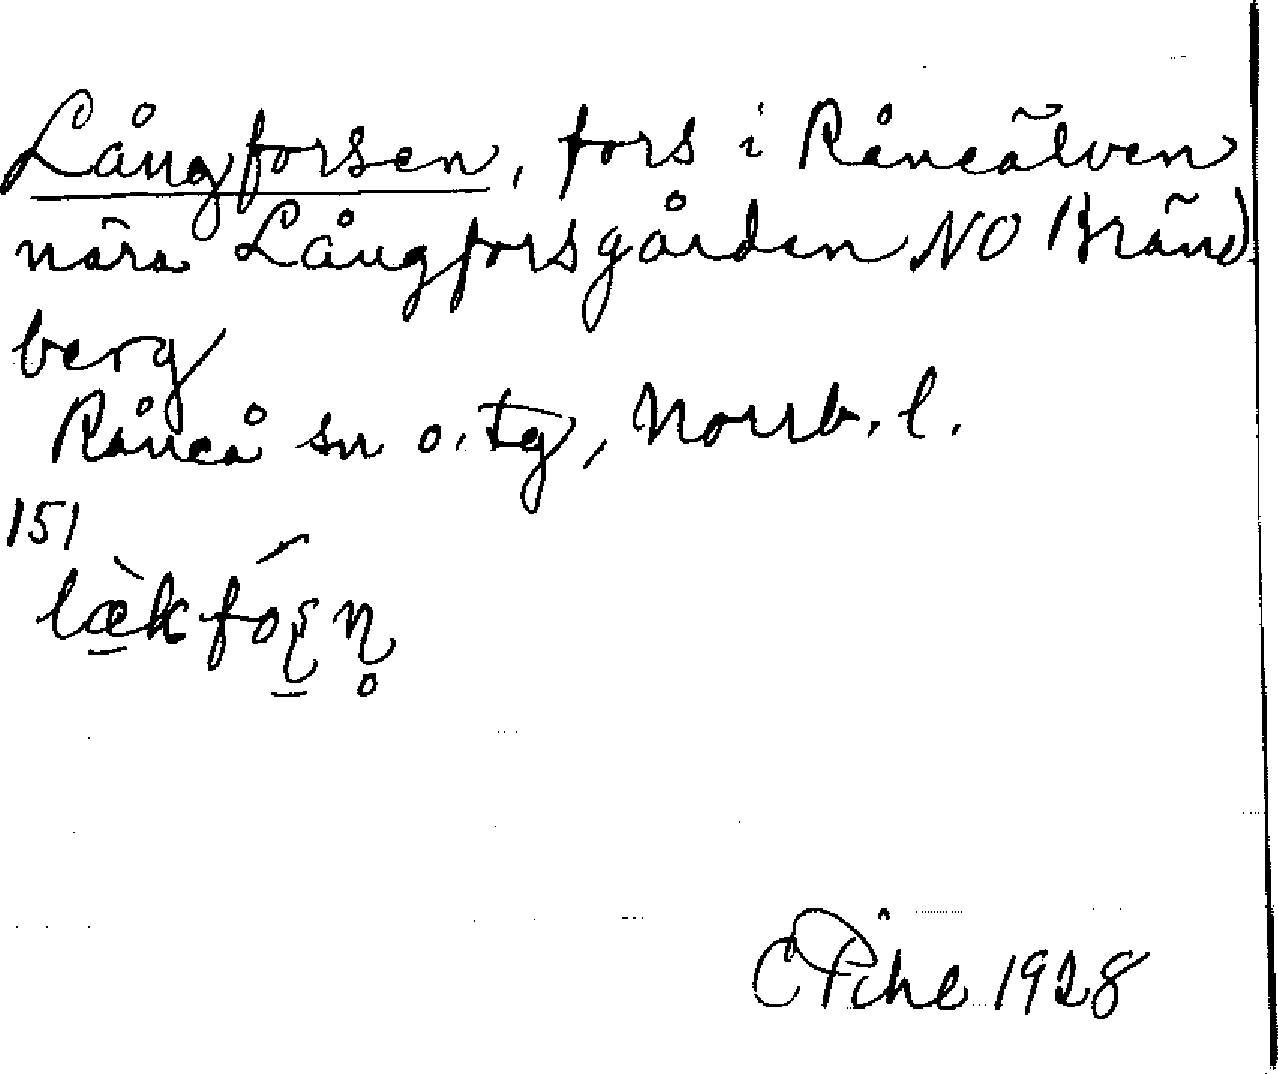 Långforsen, fors i Råneälven
nära Långforsgården NO Bränd
berg
Råneå sn o. tg, Norrb. l.
151
læ̀kfóʂɳ̥
C Pihl 1928